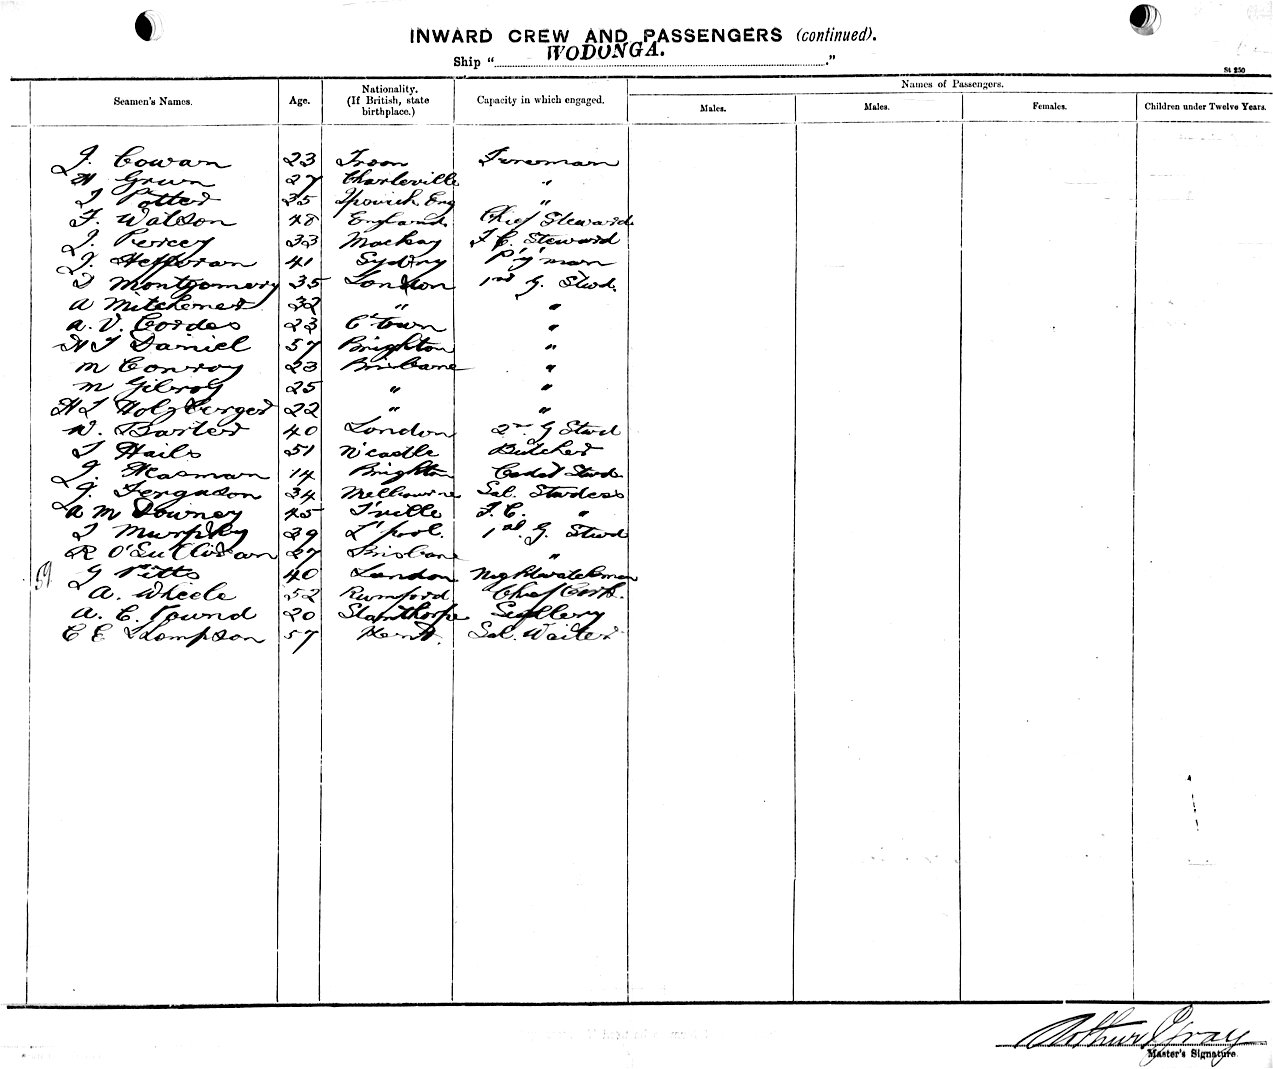 INWARD CREW AND PASSENGERS (continued).
Ship "WODONGA."
St 250
Seamen's Names. Age. Nationality. (If British, state birthplace.) Capacity in which engaged. Names of Passengers.
Males. Males. Females. Children under Twelve Years.
J. Cowan 23 Troon Fireman
H Green 27 Charleville "
J Potter 35 Ipswich Eng "
F. Watson 48 England Chief Steward
J. Percey 33 Mackay F. C. Steward
J. Heffernan 41 Sydney P'y'man
J Montgomery 35 London 1st G. Stwd.
A Mitchener 32 " "
A. V. Cordes 23 C'town "
H J Daniel 57 Brighton "
M Conroy 23 Brisbane "
M Gilroy 25 " "
H L Holzberger 22 " "
W. Barter 40 London 2nd G Stwd
J Hails 51 N'castle Butcher
J. Masman 14 Brighton Cadet Stwd
J. Ferguson 34 Melbourne Sal. Stwdess
A M Downey 45 T'ville F. C. "
J Murphy 29 L'pool. 1st G. Stwd
R O'Sullivan 27 Brisbane "
59 G Pitts 40 London Nightwatchman
A. Wheele 52 Rumford Chief Cook.
A. C. Pound 20 Stanthorpe Scullery
C E Thompson 57 Kent. Sal. Waiter
Arthur J Gray
Master's Signature.